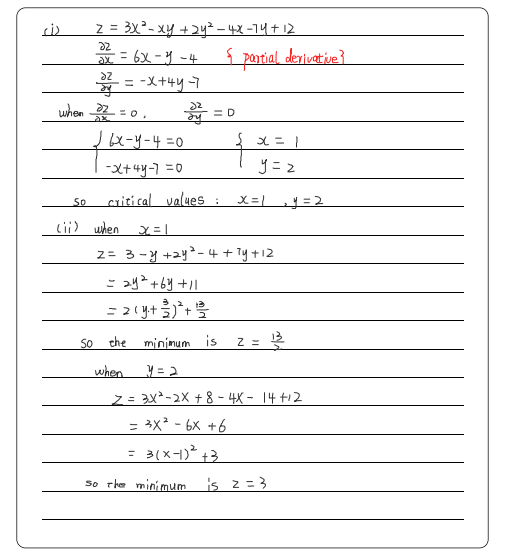 (i) z = 3x² - xy + 2y² - 4x - 7y + 12
∂z/∂x = 6x - y - 4 { partial derivative}
∂z/∂y = -x + 4y - 7
when ∂z/∂x = 0, ∂z/∂y = 0
{ 6x - y - 4 = 0 { x = 1
-x + 4y - 7 = 0 y = 2
so critical values : x = 1 , y = 2
(ii) when x = 1
z = 3 - y + 2y² - 4 + 7y + 12
= 2y² + 6y + 11
= 2(y + 3/2)² + 13/2
so the minimum is z = 13/2
when y = 2
z = 3x² - 2x + 8 - 4x - 14 + 12
= 3x² - 6x + 6
= 3(x - 1)² + 3
so the minimum is z = 3